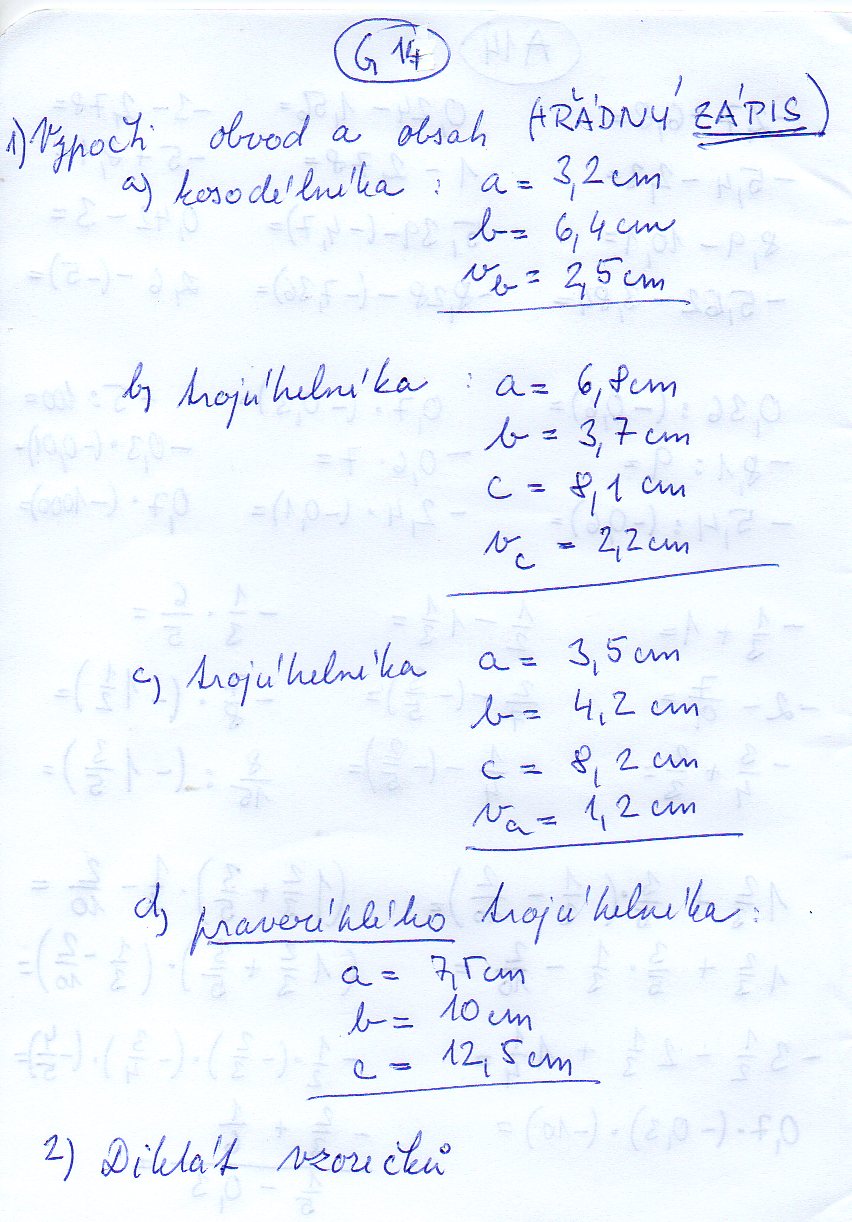 G 14
1) Vypočti obvod a obsah (+ŘÁDNÝ ZÁPIS)
a) kosodélníka : a = 3,2 cm
b = 6,4 cm
v_b = 2,5 cm
b) trojúhelníka : a = 6,8 cm
b = 3,7 cm
c = 8,1 cm
v_c = 2,2 cm
c) trojúhelníka a = 3,5 cm
b = 4,2 cm
c = 8,2 cm
v_a = 1,2 cm
d) pravoúhlého trojúhelníka :
a = 7,5 cm
b = 10 cm
c = 12,5 cm
2) Diktát vzorečků